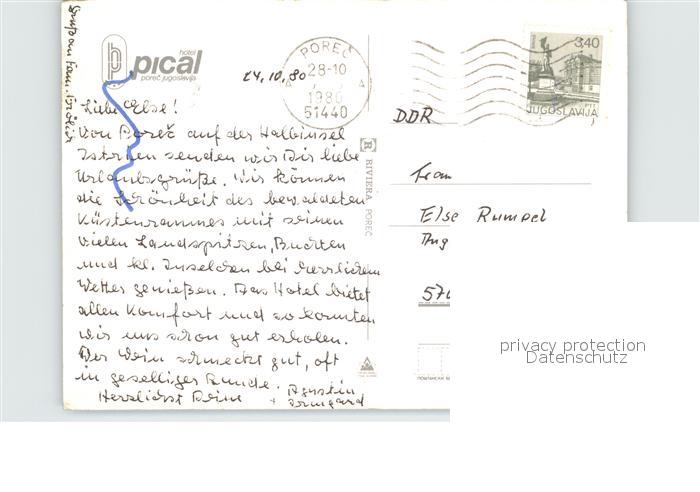 Gruß an Fam.
hotel
pical
poreč jugoslavija
24.10.80
POREČ
28-10
1980
51440
3,40
JUGOSLAVIJA
Liebe Else!
Von Poreč auf der Halbinsel
Istrien senden wir Dir liebe
Urlaubsgrüße. Wir können
die Schönheit des bewaldeten
Küstenraumes mit seinen
vielen Landspitzen, Buchten
und kl. Inselchen bei herrlichem
Wetter genießen. Das Hotel bietet
allen Komfort und so konnten
wir uns schon gut erholen.
Der Wein schmeckt gut, oft
in geselliger Runde.
Herzlichst Deine Agustin
+ Irmgard
RIVIERA POREČ
DDR
Frau
Else Rumpel
Aug
570
privacy protection
Datenschutz